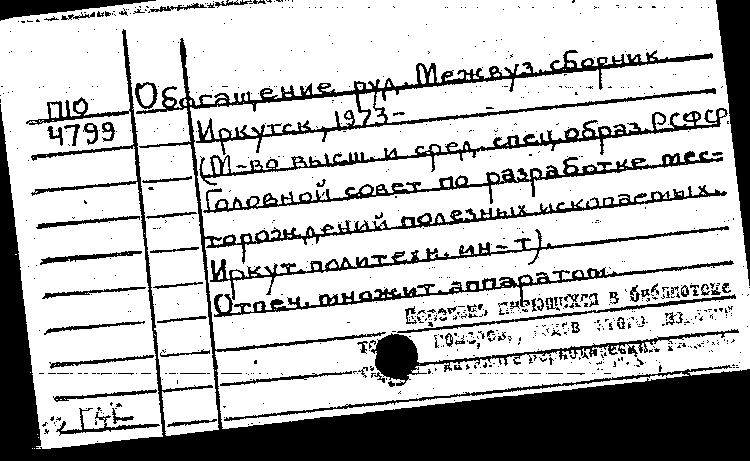 Обогащение руд. Межвуз. сборник
П10
4799
Иркутск, 1973-
(М-во высш. и сред. спец. образ. РСФСР
Головной совет по разработке мес=
торождений полезных ископаемых.
Иркут. политехн. ин-т).
Отпеч. множит. аппаратом.
Перечень имеющихся в библиотеке
номеров, этого
каталоге периодических
ГАГ